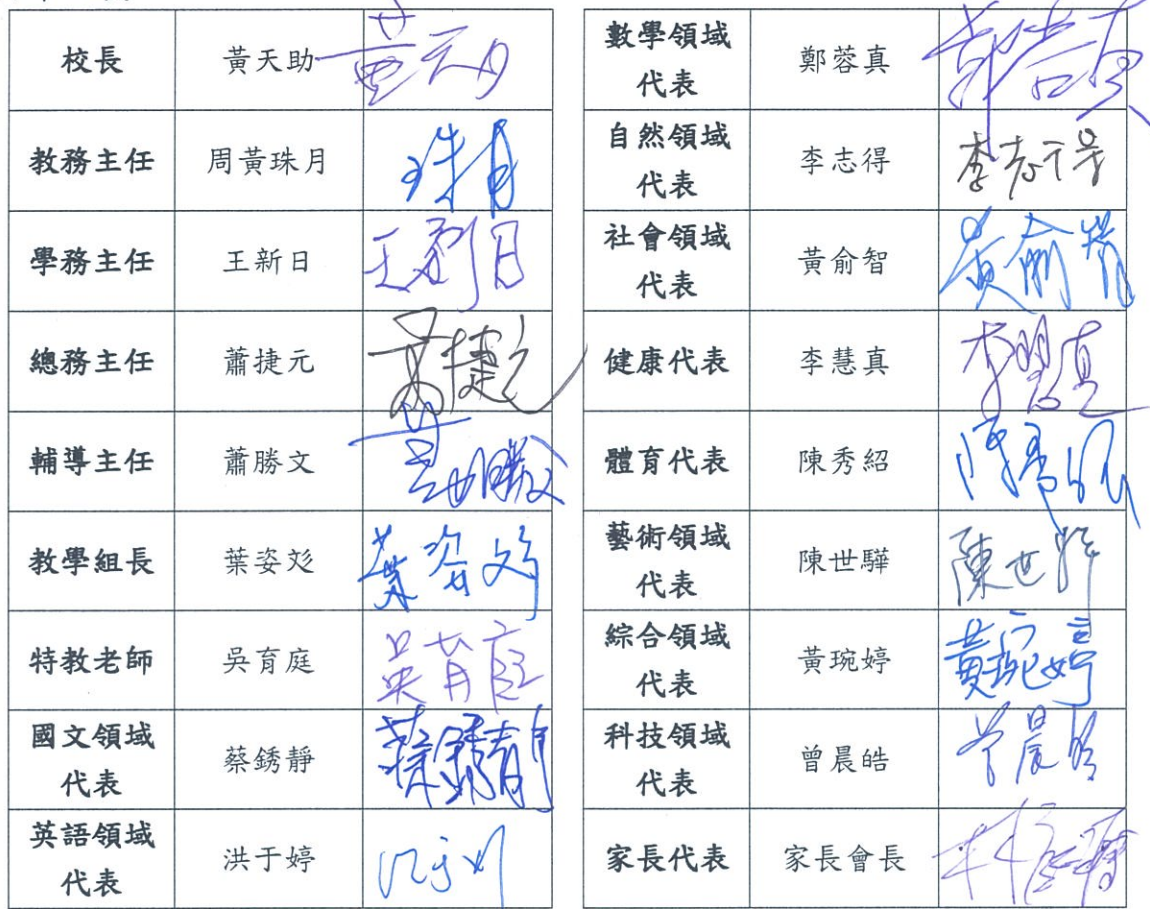 校長 黃天助 黃天助
教務主任 周黃珠月 珠月
學務主任 王新日 王新日
總務主任 蕭捷元 蕭捷元
輔導主任 蕭勝文
教學組長 葉姿彣 葉姿彣
特教老師 吳育庭 吳育庭
國文領域
代表
蔡銹靜 蔡銹靜
英語領域
代表
洪于婷
數學領域
代表
鄭蓉真
自然領域
代表
李志得 李志得
社會領域
代表
黃俞智 黃俞智
健康代表 李慧真 李慧真
體育代表 陳秀紹 陳秀紹
藝術領域
代表
陳世驊 陳世驊
綜合領域
代表
黃琬婷 黃琬婷
科技領域
代表
曾晨皓 曾晨皓
家長代表 家長會長